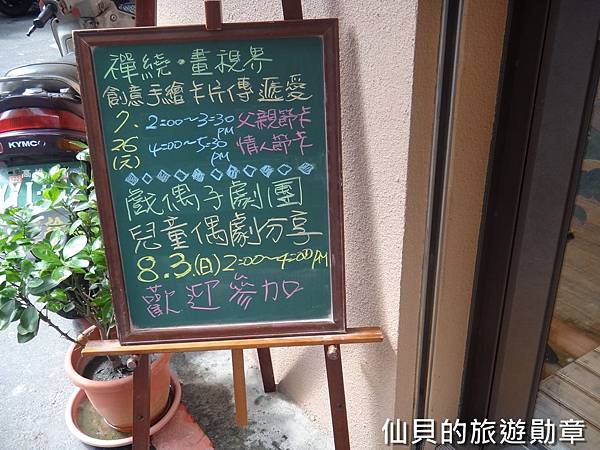 禪繞・畫視界
創意手繪卡片傳遞愛
7. 2:00~3:30 PM 父親節卡
26 4:00~5:30 PM 情人節卡
戲偶子劇團
兒童偶劇分享
8.3(日) 2:00~4:00 PM
歡迎參加
KYMCO
仙貝的旅遊勛章